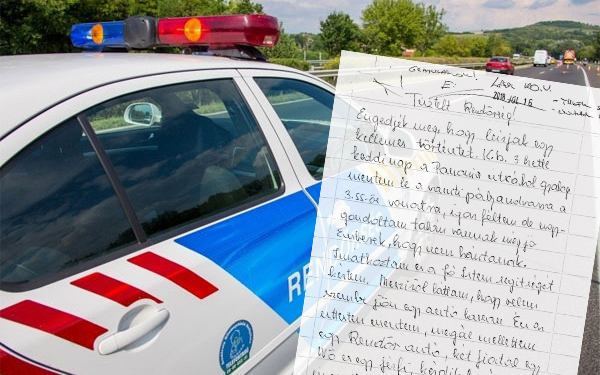 JÚL 16.
Tisztelt Rendőrség!
Engedjék meg, hogy leirjak egy
kellemes történetet. Kb. 3 hete
keddi nap a Pannonia utcából gyalog
mentem le a vasuti pályaudvarra a
3.55-ös vonatra, igen féltem de úgy
gondoltam talán vannak még jó
Emberek, hogy nem bántanak.
Imatkoztam és a jó Isten segitséget
kértem. Messziről láttam, hogy velem
szembe jön egy autó lassan. Én az
uttesten mentem, megált mellettem
egy Rendőr autó, két fiatal egy
Nő és egy férfi,
REN